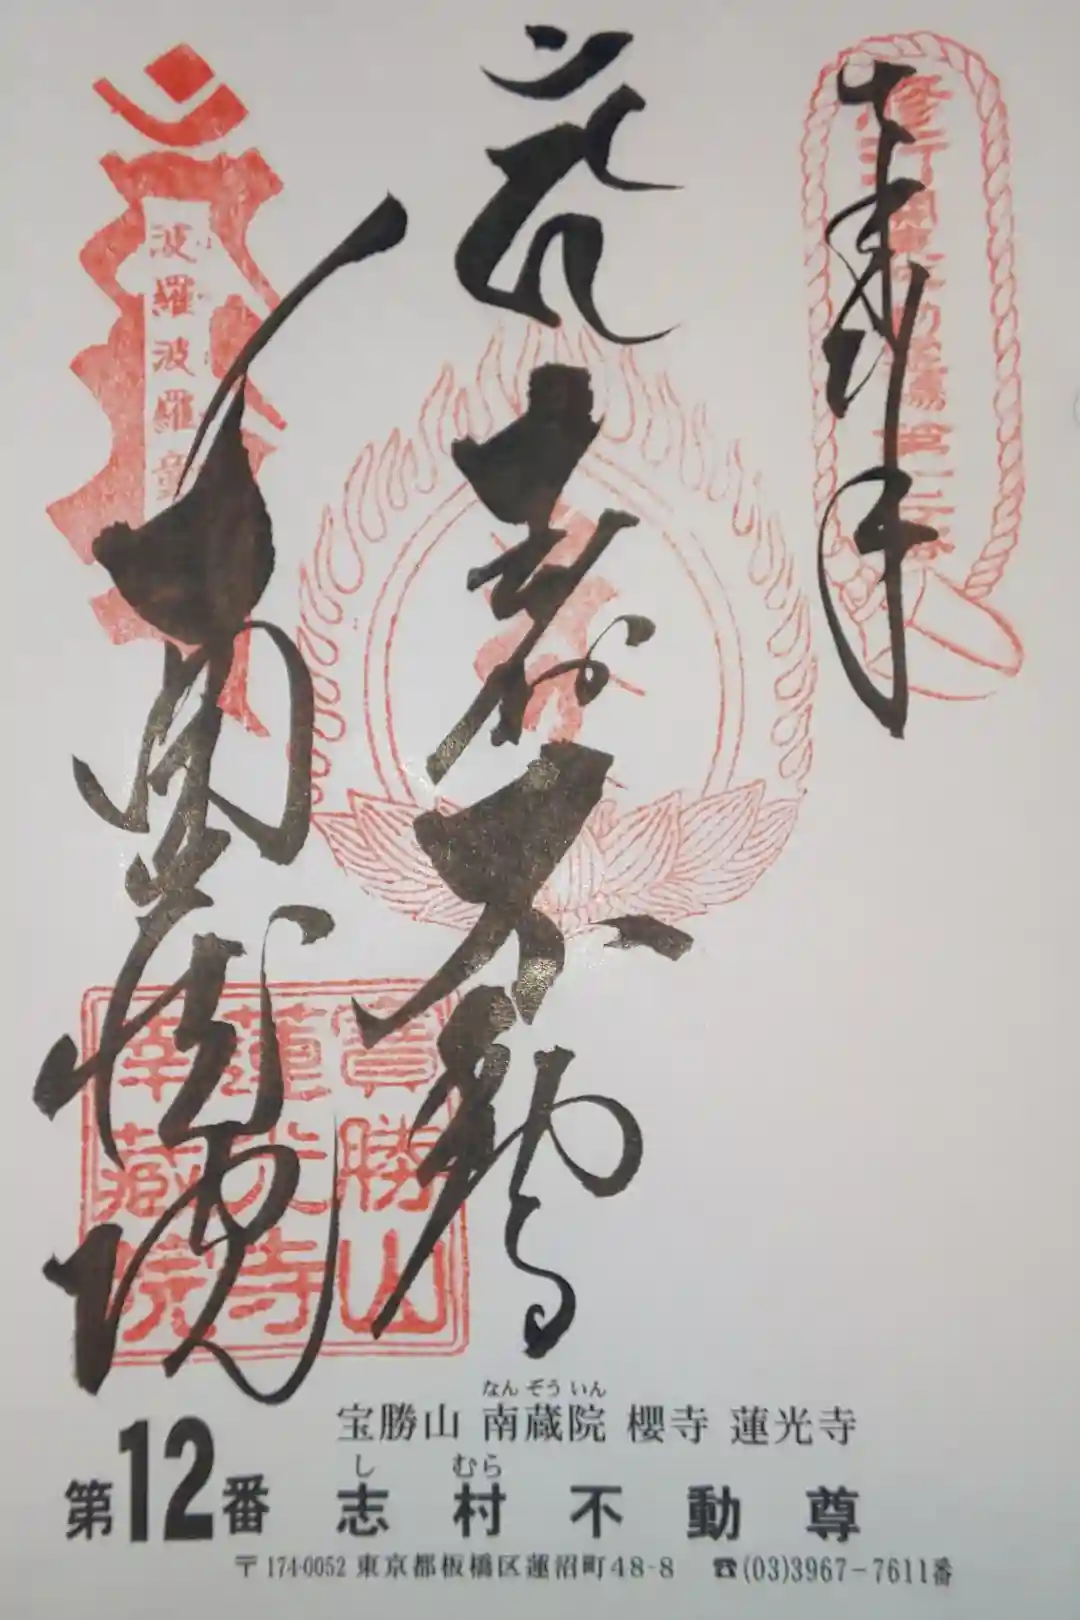 奉拝
志村不動
南蔵院
波羅波羅
寶勝山
蓮光寺
南藏院
なんぞういん
宝勝山 南蔵院 櫻寺 蓮光寺
第12番
しむら
志村不動尊
〒174-0052 東京都板橋区蓮沼町48-8 ☎(03)3967-7611番